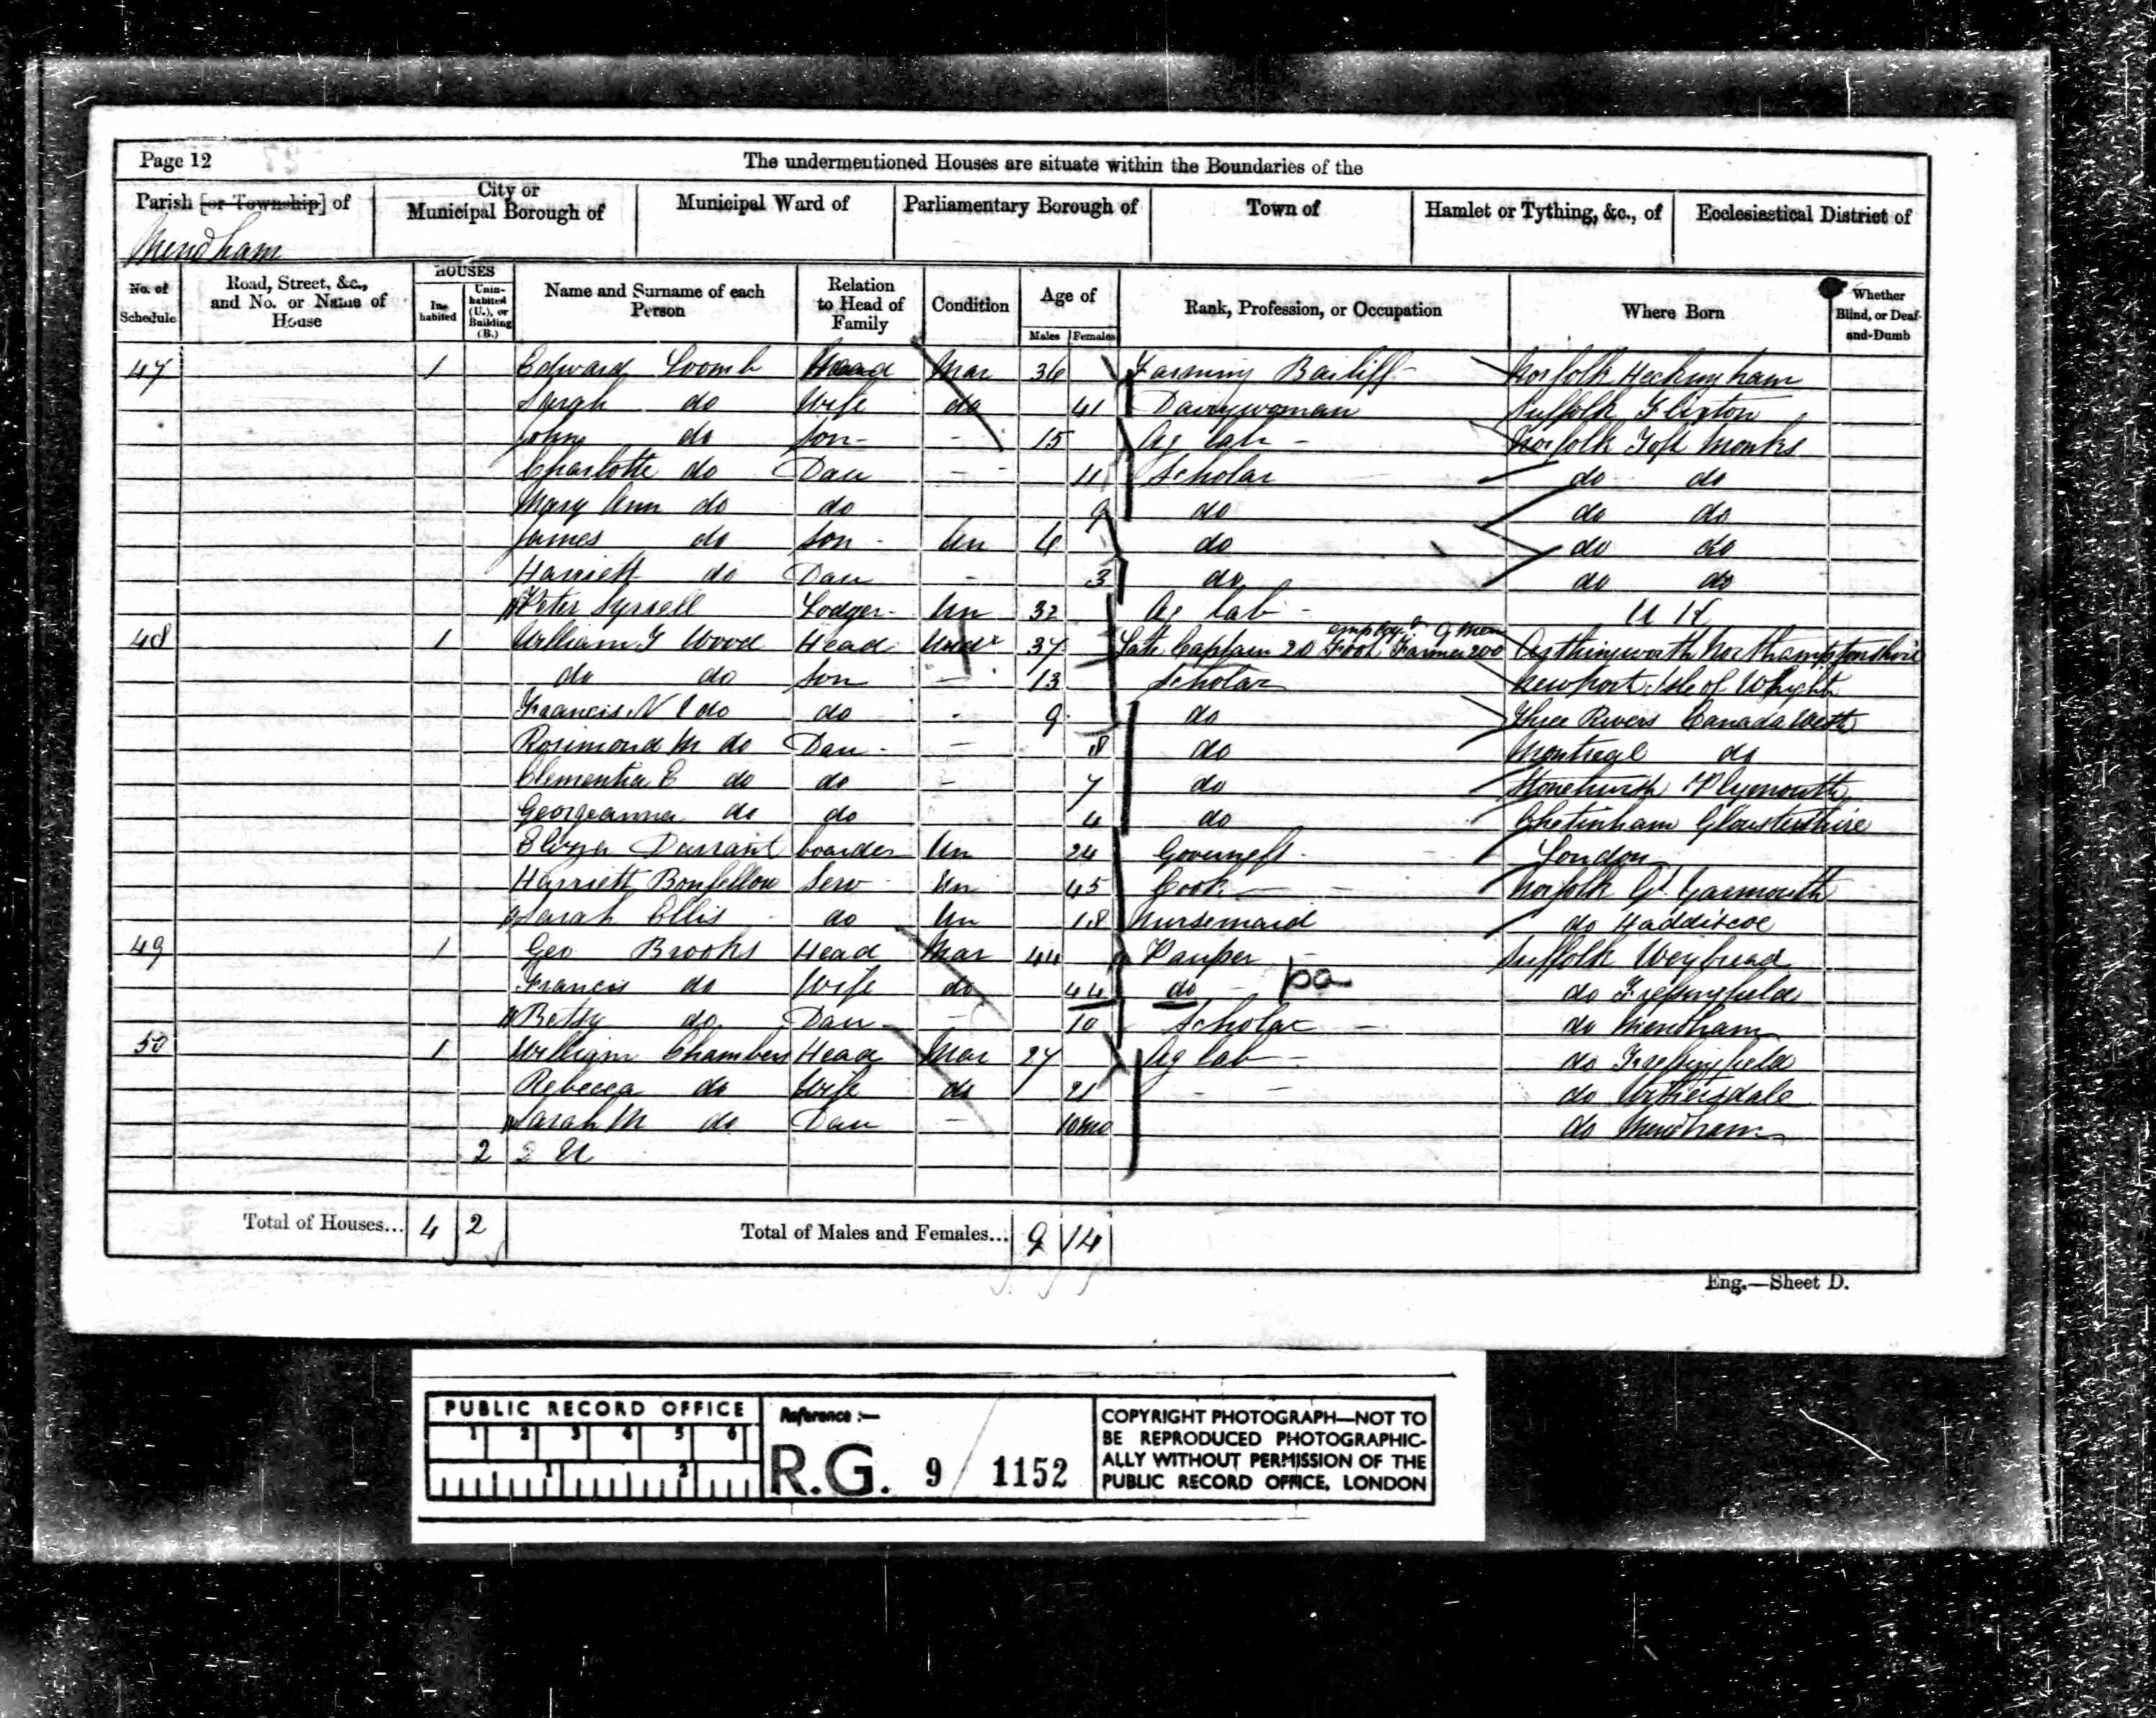 Page 12
The undermentioned Houses are situate within the Boundaries of the
Parish [or Township] of
City or Municipal Borough of
Municipal Ward of
Parliamentary Borough of
Town of
Hamlet or Tything, &c., of
Ecclesiastical District of
Mendham
No. of Schedule
Road, Street, &c., and No. or Name of House
HOUSES
Inhabited
Uninhabited (U.), or Building (B.)
Name and Surname of each Person
Relation to Head of Family
Condition
Age of
Males
Females
Rank, Profession, or Occupation
Where Born
Whether Blind, or Deaf-and-Dumb
47 1 Edward Loomb Head Mar 36 Farming Bailiff Norfolk Heckingham
Sarah do Wife do 41 Dairywoman Suffolk Flixton
John do Son - 15 Ag lab - Norfolk Toft Monks
Charlotte do Dau - 11 Scholar do do
Mary Ann do do 9 do do do
James do Son - Un 6 do do do
Harriett do Dau - 3 do do do
Peter Lodger - Un 32 Ag lab - U K
48 1 William Wood Head 37 Late Captain 20 Foot Farmer 200 employg 9 Men Arthingworth Northamptonshire
do do Son - 13 Scholar Newport Isle of Wight
Francis N do do - 9 do Three Rivers Canada West
Rosimond M do Dau - - 8 do Montreal do
Clementia E do do - 7 do Plymouth
Georgeanna do do 4 do Gloustershire
Durrant boarder Un 24 Governess - London
Harriett Bonfellow Serv - Un 45 Cook - Norfolk Gt. Yarmouth
Sarah Ellis do Un 18 Nursemaid do Haddiscoe
49 1 Geo Brooks Head Mar 44 Pauper Suffolk Weybread
Francis do Wife do 44 do - pa do Fressingfield
Betsy do Dau - - 10 Scholar - do Mendham
50 1 William Chambers Head Mar 27 Ag lab - do Fressingfield
Rebecca do Wife do 21 - - do Withersdale
Sarah M do Dau - 10mo do Mendham
2 2 U
Total of Houses... 4 2
Total of Males and Females... 9 14
Eng.—Sheet D.
PUBLIC RECORD OFFICE
1 2 3 4 5 6
1 2
Reference :—
R.G. 9 / 1152
COPYRIGHT PHOTOGRAPH—NOT TO
BE REPRODUCED PHOTOGRAPHIC-
ALLY WITHOUT PERMISSION OF THE
PUBLIC RECORD OFFICE, LONDON